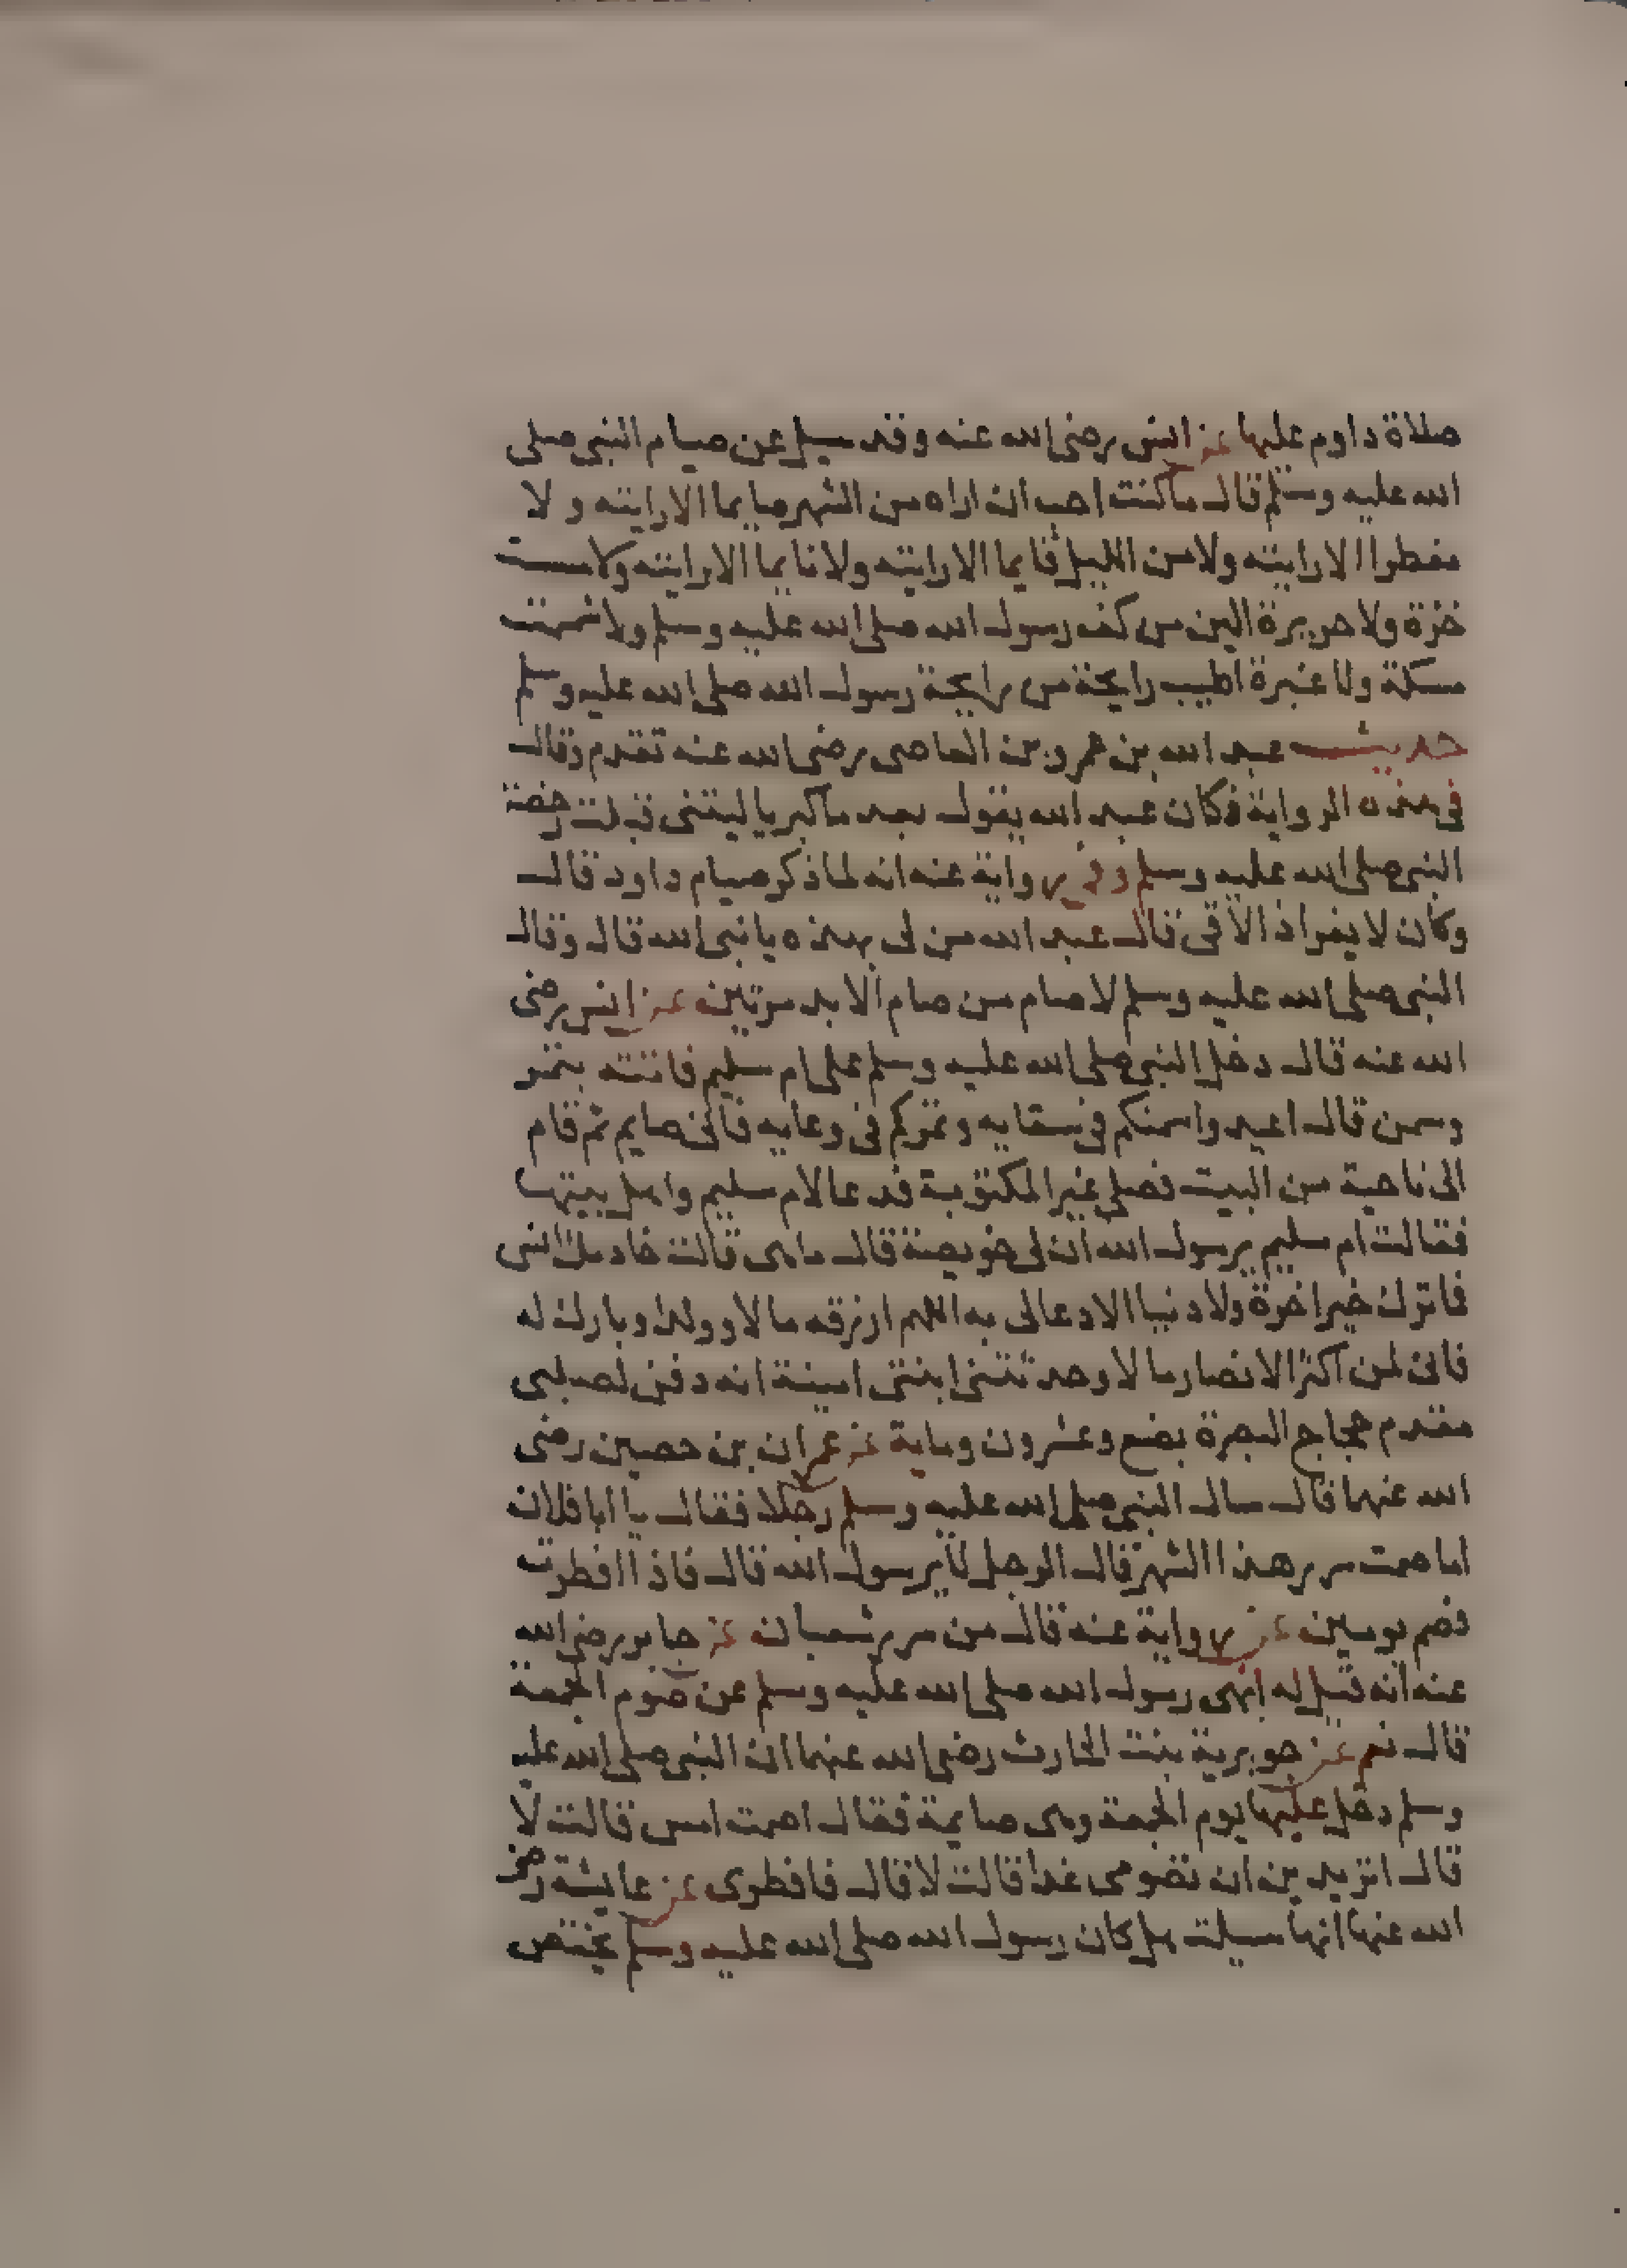 صلاة داوم عليها عن انس رضى الله عنه وقد سيل عن صيام النبى صلى
الله عليه وسلم قال ما كنت احب ان اراه من الشهر صايما الا رايته ولا
مفطرا الا رايته ولا من الليل قايما الا رايته ولا نايما الا رايته ولا مست
خزة ولا حريرة الين من كف رسول الله صلى الله عليه وسلم ولا شممت
مسكة ولا عنبرة اطيب رايحة من رايحة رسول الله صلى الله عليه وسلم
حديث عبد الله بن عمرو بن العاصى رضى الله عنه تقدم وقال
فى هذه الرواية فكان عبد الله يقول بعد ما كبر يا ليتنى قبلت رخصة
النبى صلى الله عليه وسلم وفى رواية عنه انه لما ذكر صيام داود قال
وكان لا يفر اذا لاقى قال عبد الله من لى بهذه يا نبى الله قال وقال
النبى صلى الله عليه وسلم لا صام من صام الابد مرتين عن انس رضى
الله عنه قال دخل النبى صلى الله عليه وسلم على ام سليم فاتته بتمر
وسمن قال اعيدوا سمنكم فى سقايه وتمركم فى وعايه فانى صايم ثم قام
الى ناحية من البيت فصلى غير المكتوبة فدعا لام سليم واهل بيتها
فقالت ام سليم يرسول الله ان لى خويصة قال ما هى قالت خادمك انس
فا ترك خير اخرة ولا دنيا الا دعا لى به اللهم ارزقه مالا وولدا وبارك له
فانى لمن اكثر الانصار مالا وحدثتنى ابنتى امينة انه دفن لصلبى
مقدم حجاج البصرة بضع وعشرون وماية عن عمران بن حصين رضى
الله عنهما قال سال النبى صلى الله عليه وسلم رجلا فقال يا ابا فلان
اما صمت سرر هذا الشهر قال الرجل لا يرسول الله قال فاذا افطرت
فصم يومين عن رواية عنه قال من سرر شعبان عن جابر رضى الله
عنه انه قيل له انهى رسول الله صلى الله عليه وسلم عن صوم الجمعة
قال نعم عن جويرية بنت الحارث رضى الله عنها ان النبى صلى الله عليه
وسلم دخل عليها يوم الجمعة وهى صايمة فقال اصمت امس قالت لا
قال اتريدين ان تصومى غدا قالت لا قال فافطرى عن عايشة رضى
الله عنها انها سيلت هل كان رسول الله صلى الله عليه وسلم يختص